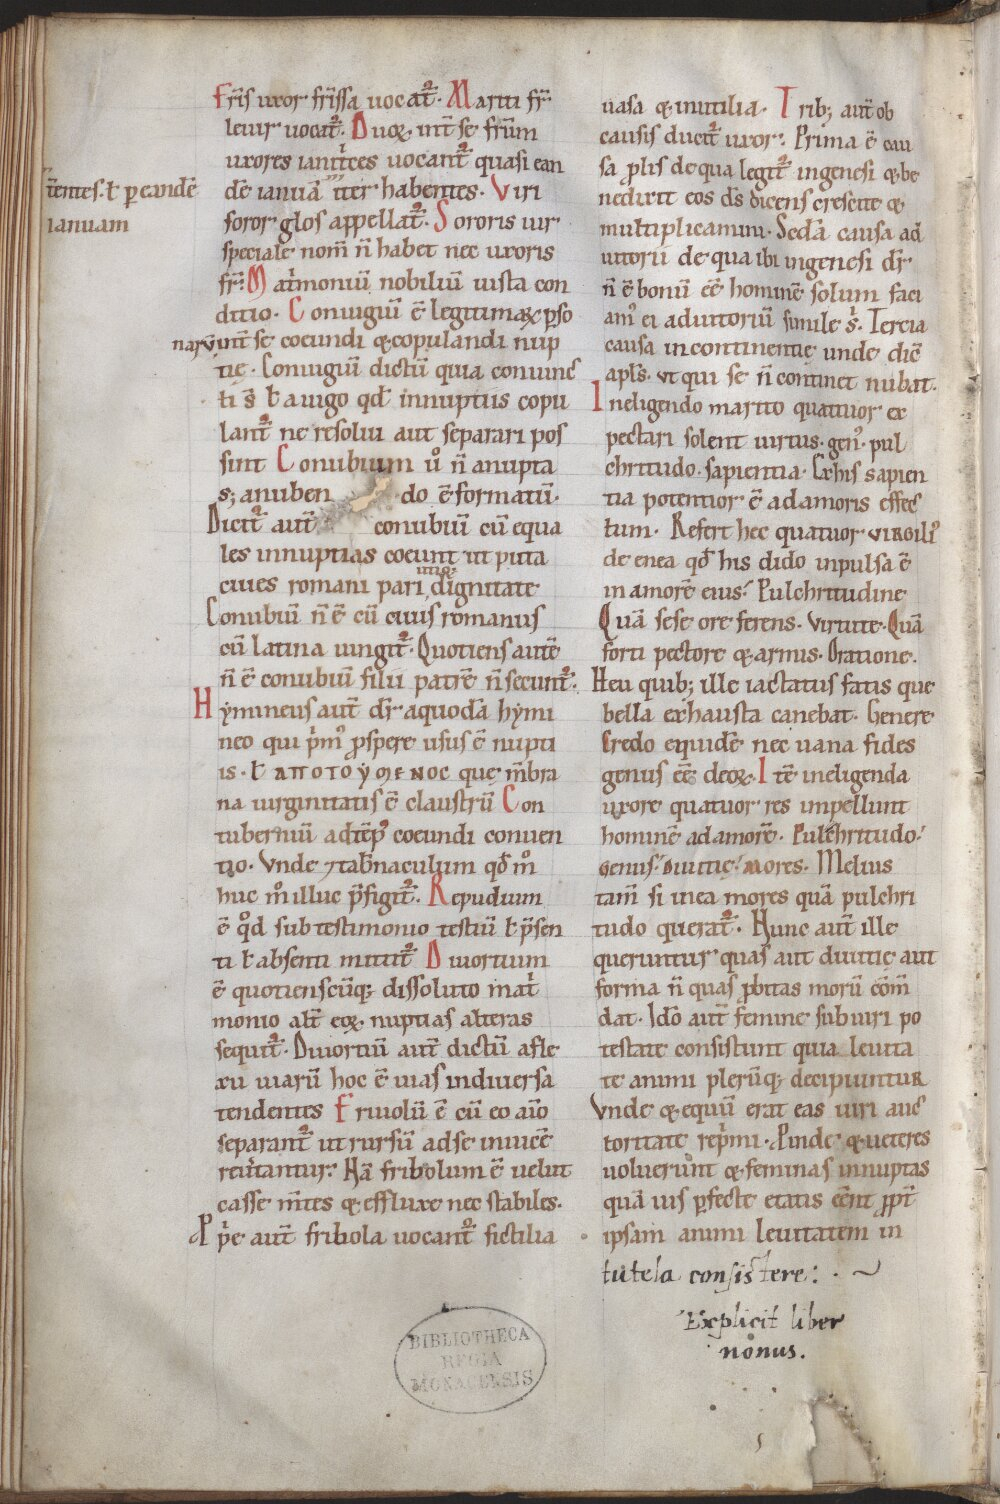 Fr̄is uxor fr̄issa uocat᷑. Marti fr̄
leuir uocat᷑. Duoꝝ int̄ se frūm
uxores ianit̓ces uocant᷑ quasi ean
dē ianuā iter habentes. Viri
t̄entes. ł ꝑ eandē
ianuam
soror glos appellat᷑. Sororis uir
speciale nom̄ n̄ habet nec uxoris
fr̄. Mat̓moniū nobiliū iusta con
ditio. Coniugiū ē legitimaꝝ ꝑso
narū int̄ se coeundi & copulandi nup
tię. Coniugiū dictū quia coniunc
ti s̄ ł a iugo qđ innuptiis copu
lant᷑ ne resolui aut separari pos
sint Conubium ů n̄ a nupta
s; a nuben do ē formatū.
Dicit᷑ aut̄ conubiū cū equa
les innuptias coeunt ut puta
ciues romani pari dignitate
utiq;
Conubiū n̄ ē cū ciuis romanus
cū latina iungit᷑. Quotiens autē
n̄ ē conubiū filii patrē n̄ secunt᷑.
Hẏmineus aut̄ dr̄ a quodā hẏmi
neo qui p̓m᷒ ꝓspere usus ē nupti
is. ł ΑΠΟΤΟΥΜΕΝΟC que m̄bra
na uirginitatis ē claustrū Con
tuberniū ad tēp᷒ coeundi conuen
tio. Vnde ⁊ tab̄naculum qđ m̊
huc m̊ illuc p̄figit᷑. Repudium
ē qđ sub testimonio testiū ł p̄sen
ti ł absenti mittit᷑ Diuortium
ē quotienscūq; dissoluto mat̓
monio alt̄ eoꝝ nuptias alteras
sequit᷑. Diuortiū aut̄ dictū a fle
xu uiarū hoc ē uias in diuersa
tendentes Friuolū ē cū eo aīo
separant᷑ ut rursū ad se inuicē
reūtantur. Nā fribolum ē uelut
casse m̄tes & effluxe nec stabiles.
Ꝓp̓e aut̄ fribola uocant᷑ fictilia
uasa & inutilia. Trib; aut̄ ob
causis ducit᷑ uxor. Prima ē cau
sa ꝓlis de qua legit᷑ in genesi & be
nedixit eos dſ̄ dicens crescite &
multiplicamini. Secd̄a causa ad
iutorii de qua ibi in genesi dr̄
n̄ ē bonū eē hominē solum faci
am᷒ ei adiutoriū simile s̓. Tercia
causa incontinentię unde dic̄
apl̄s. ut qui se n̄ continet nubat.
In eligendo marito quatuor ex
pectari solent uirtus. gen᷒. pul
chritudo. sapientia. Ex his sapien
tia potentior ē ad amoris effec
tum. Refert hec quatuor VIRGILI᷒
de enea qđ his dido inpulsa ē
in amorē eius. Pulchritudine
Quā sese ore ferens. Virtute. Quā
forti pectore & armis. Oratione.
Heu quib; ille iactatus fatis que
bella exhausta canebat. Genere
Credo equidē nec uana fides
genus eē deoꝝ. Itē in eligenda
uxore quatuor res impellunt
hominē ad amorē. Pulchritudo.
Genus. diuitię. Mores. Melius
tam̄ si in ea mores quā pulchri
tudo querat᷑. Nunc aut̄ ille
queruntur quas aut diuitię aut
forma n̄ quas ꝓbitas morū cōm̄
dat. Idō aut̄ femine sub uiri po
testate consistunt quia leuita
te animi plerūq; decipiuntur
Vnde & equū erat eas uiri auc
toritate rep̓mi. Proinde & ueteres
uoluerunt & feminas innuptas
quāuis ꝑfecte etatis eēnt ꝓpt̄
ipsam animi leuitatem in
tutela consistere:
Explicit liber
nonus.
BIBLIOTHECA
REGIA
MONACENSIS